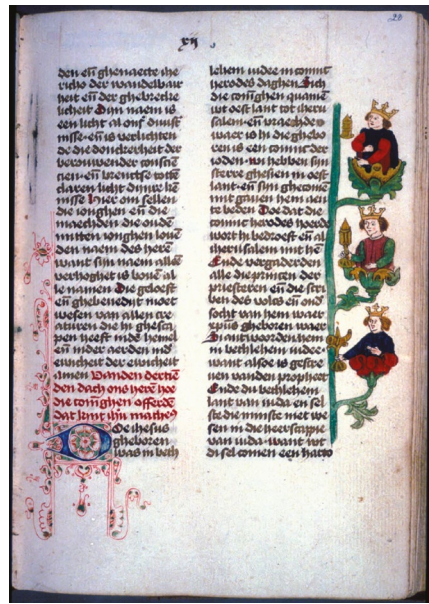 xij
28
den eñ ghenaecte ihe
richo der wandelbair
heit eñ der ghebrecke
licheit Dijn naem is
een licht al ons duust
nisse · eñ is verlichten
de die donckerheit der
eñ brenctse totte
claren licht dinre ken
nisse Hier om sellen
die ionghen eñ die
maechden die oude
mitten ionghen louē
den naem des herē
want sijn naem allē
verhoghet is bouē al
le namen Die
eñ ghebenedijt moet
wesen van allen cre
aturen die in ghesca
pen heeft inde hemel
eñ inder aerden
ewicheit der ewicheit
amen Vanden dertiē
den dach ons herē hoe
die coninghen offerdē
dat kint ihū matheꝰ
Doe ihesus
gheboren
was in beth
lehem iudee in coninc
herodes daghen Sich
die coninghen quamē
wt oest lant tot iheru
salem · eñ vraechdē
waer is hi die ghebo
ren is een coninc der
ioden · wi hebben sijn
sterre ghesien in oest
lant · eñ sijn ghecomē
mit gauen hem aen
te beden Doe dat die
coninc herodes hoerde
wort hi bedroeft eñ al
iherusalem mit hē
Ende vergaderden
alle die princen der
priesteren eñ die scri
ben des volcs eñ ond
socht van hem waer
xpūs gheboren waer
Si antwoorden hem
in bethlehem iudee ·
want alsoe is gescre
uen vanden prophet
Ende du bethlehem
lant van iuda en sel
ste die minste niet we
sen in die heerscapie
van iuda · want wt
di sel comen een herto